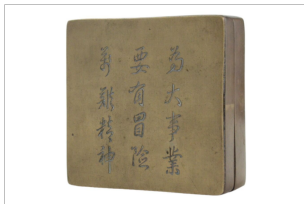 為大事業
要有冒險
辛難精神